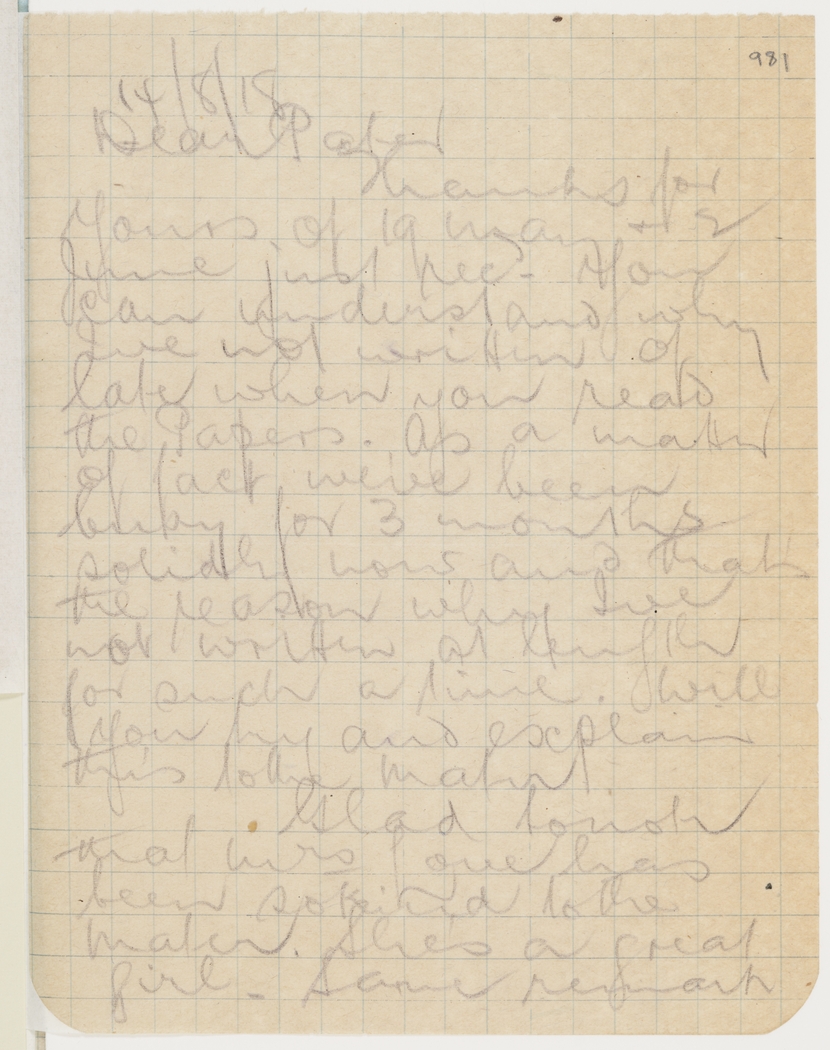 981
14/8/18
Dear Pater
Thanks for
Yours of 19 May + 2
June just rec- You
can understand why
Ive not written of
late when you read
the Papers. As a matter
of fact we've been
busy for 3 months
solidly now and that
the reason why Ive
not written at length
for such a time. Will
you try and explain
this to the Mater!
Glad to note
that Mrs has
been so kind to the
mater. She's a great
girl - Same remark